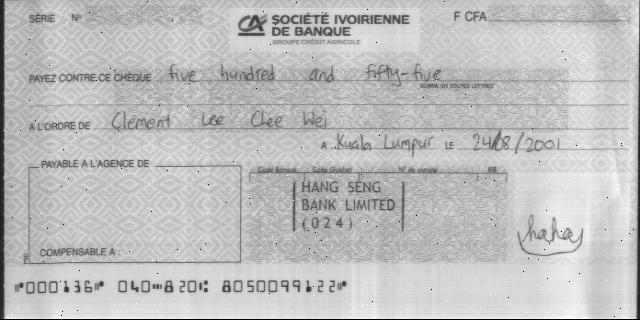 SÉRIE N° CA SOCIÉTÉ IVOIRIENNE DE BANQUE F CFA
GROUPE CRÉDIT AGRICOLE
PAYEZ CONTRE CE CHÈQUE five hundred and fifty-five
SOMME EN TOUTES LETTRES
A L'ORDRE DE Clement Lee Chee Wei
A Kuala Lumpur LE 24/08/2001
PAYABLE A L'AGENCE DE
Code Banque Code Guichet N° de compte RIB
HANG SENG
BANK LIMITED
(024)
haha
COMPENSABLE A :
⑈000136⑈ 040⑉820⑆ 8050099122⑈